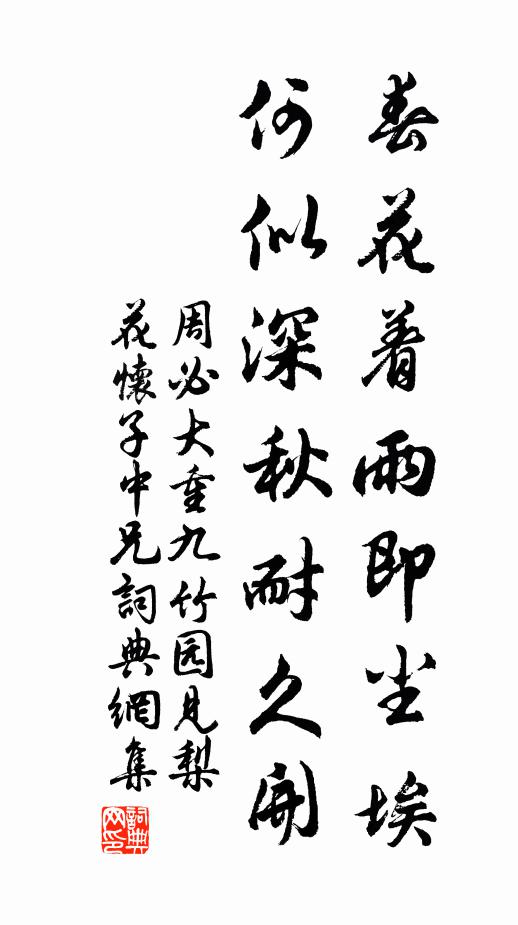 春花着雨即尘埃
何似深秋耐久開
周必大重九竹园見梨
花懷子中兄詞典網集
詞典
网印